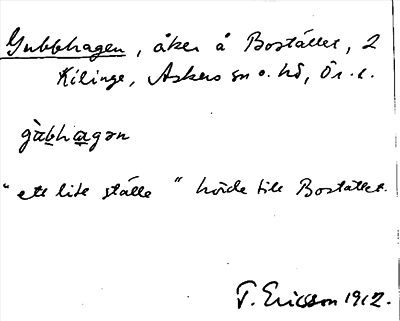 Gubbhagen, åker å Bostället, 2
Kilinge, Askers sn o. hd, Ör. l.
gàbhagən
"ett lite ställe" hörde till Bostället.
T. Ericsson 1912.